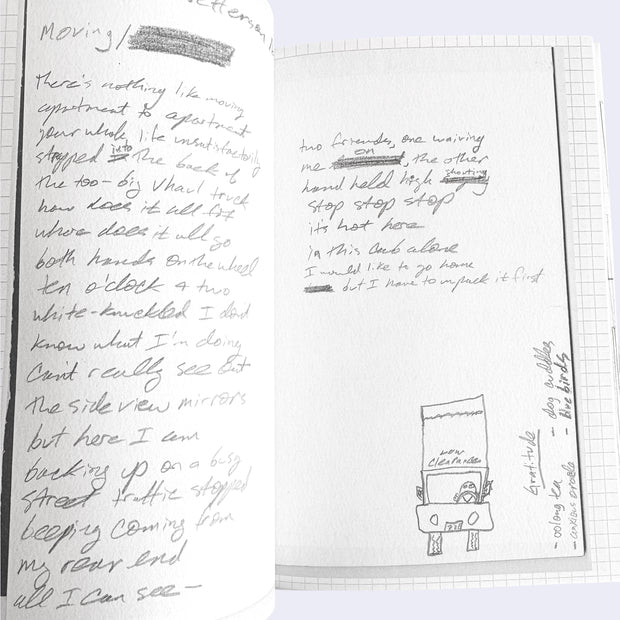 Moving/
There's nothing like moving
apartment to apartment
your whole life unsatisfactorily
strapped into the back of
the too-big Uhaul truck
how does it all fit
where does it all go
both hands on the wheel
ten o'clock & two
white-knuckled I don't
know what I'm doing
Can't really see out
the side view mirrors
but here I am
backing up on a busy
street traffic stopped
beeping coming from
my rear end
all I can see—
two friends, one waiving
me on, the other
hand held high shouting
stop stop stop
it's hot here
in this cab alone
I would like to go home
but I have to unpack it first
low
Clearance
Gratitude
- oolong tea
- dog cuddles
- blue birds